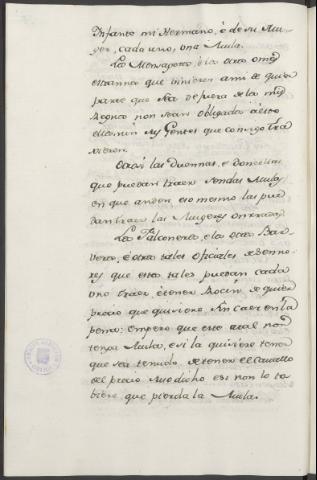 Infante mi Hermano, ó de su Mu-
ger, cada uno, una Mula.
Los Mensageros é los otros omes
estrannos que vinieren a mi de qual
parte que sea de fuera de los mis
Regnos non sean obligados á esto
ellos nin sus Gentes que consigo tra
xieren.
Otrosi las Duennas, e Doncellas
que puedan traer sendas Mulas
en que anden, eso mesmo las pue
dan traer las Mugeres onrradas
Los Falconeros, e los otros Bar
veros, é otros tales oficiales de Senno-
res que estos tales puedan cada
uno traer, é tener Rocin de qualquier
precio que quisiere sin caer en la
pena: empero que este atal non
tenga Mula, e si la quisiere tener
que sea tenudo de tener el Cavallo
del precio susodicho e si non lo to
biere que pierda la Mula.